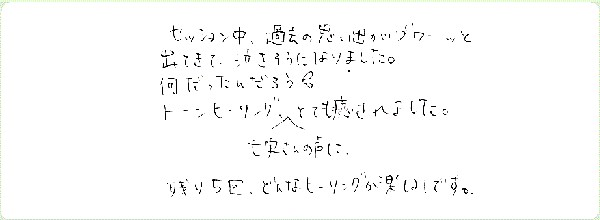 セッション中、過去の思い出がブワーッと
出てきて、泣きそうになりました。
何だったんだろう??
トーンヒーリング、とても癒されました。
さんの声に、
残り5回、どんなヒーリングか楽しみです。